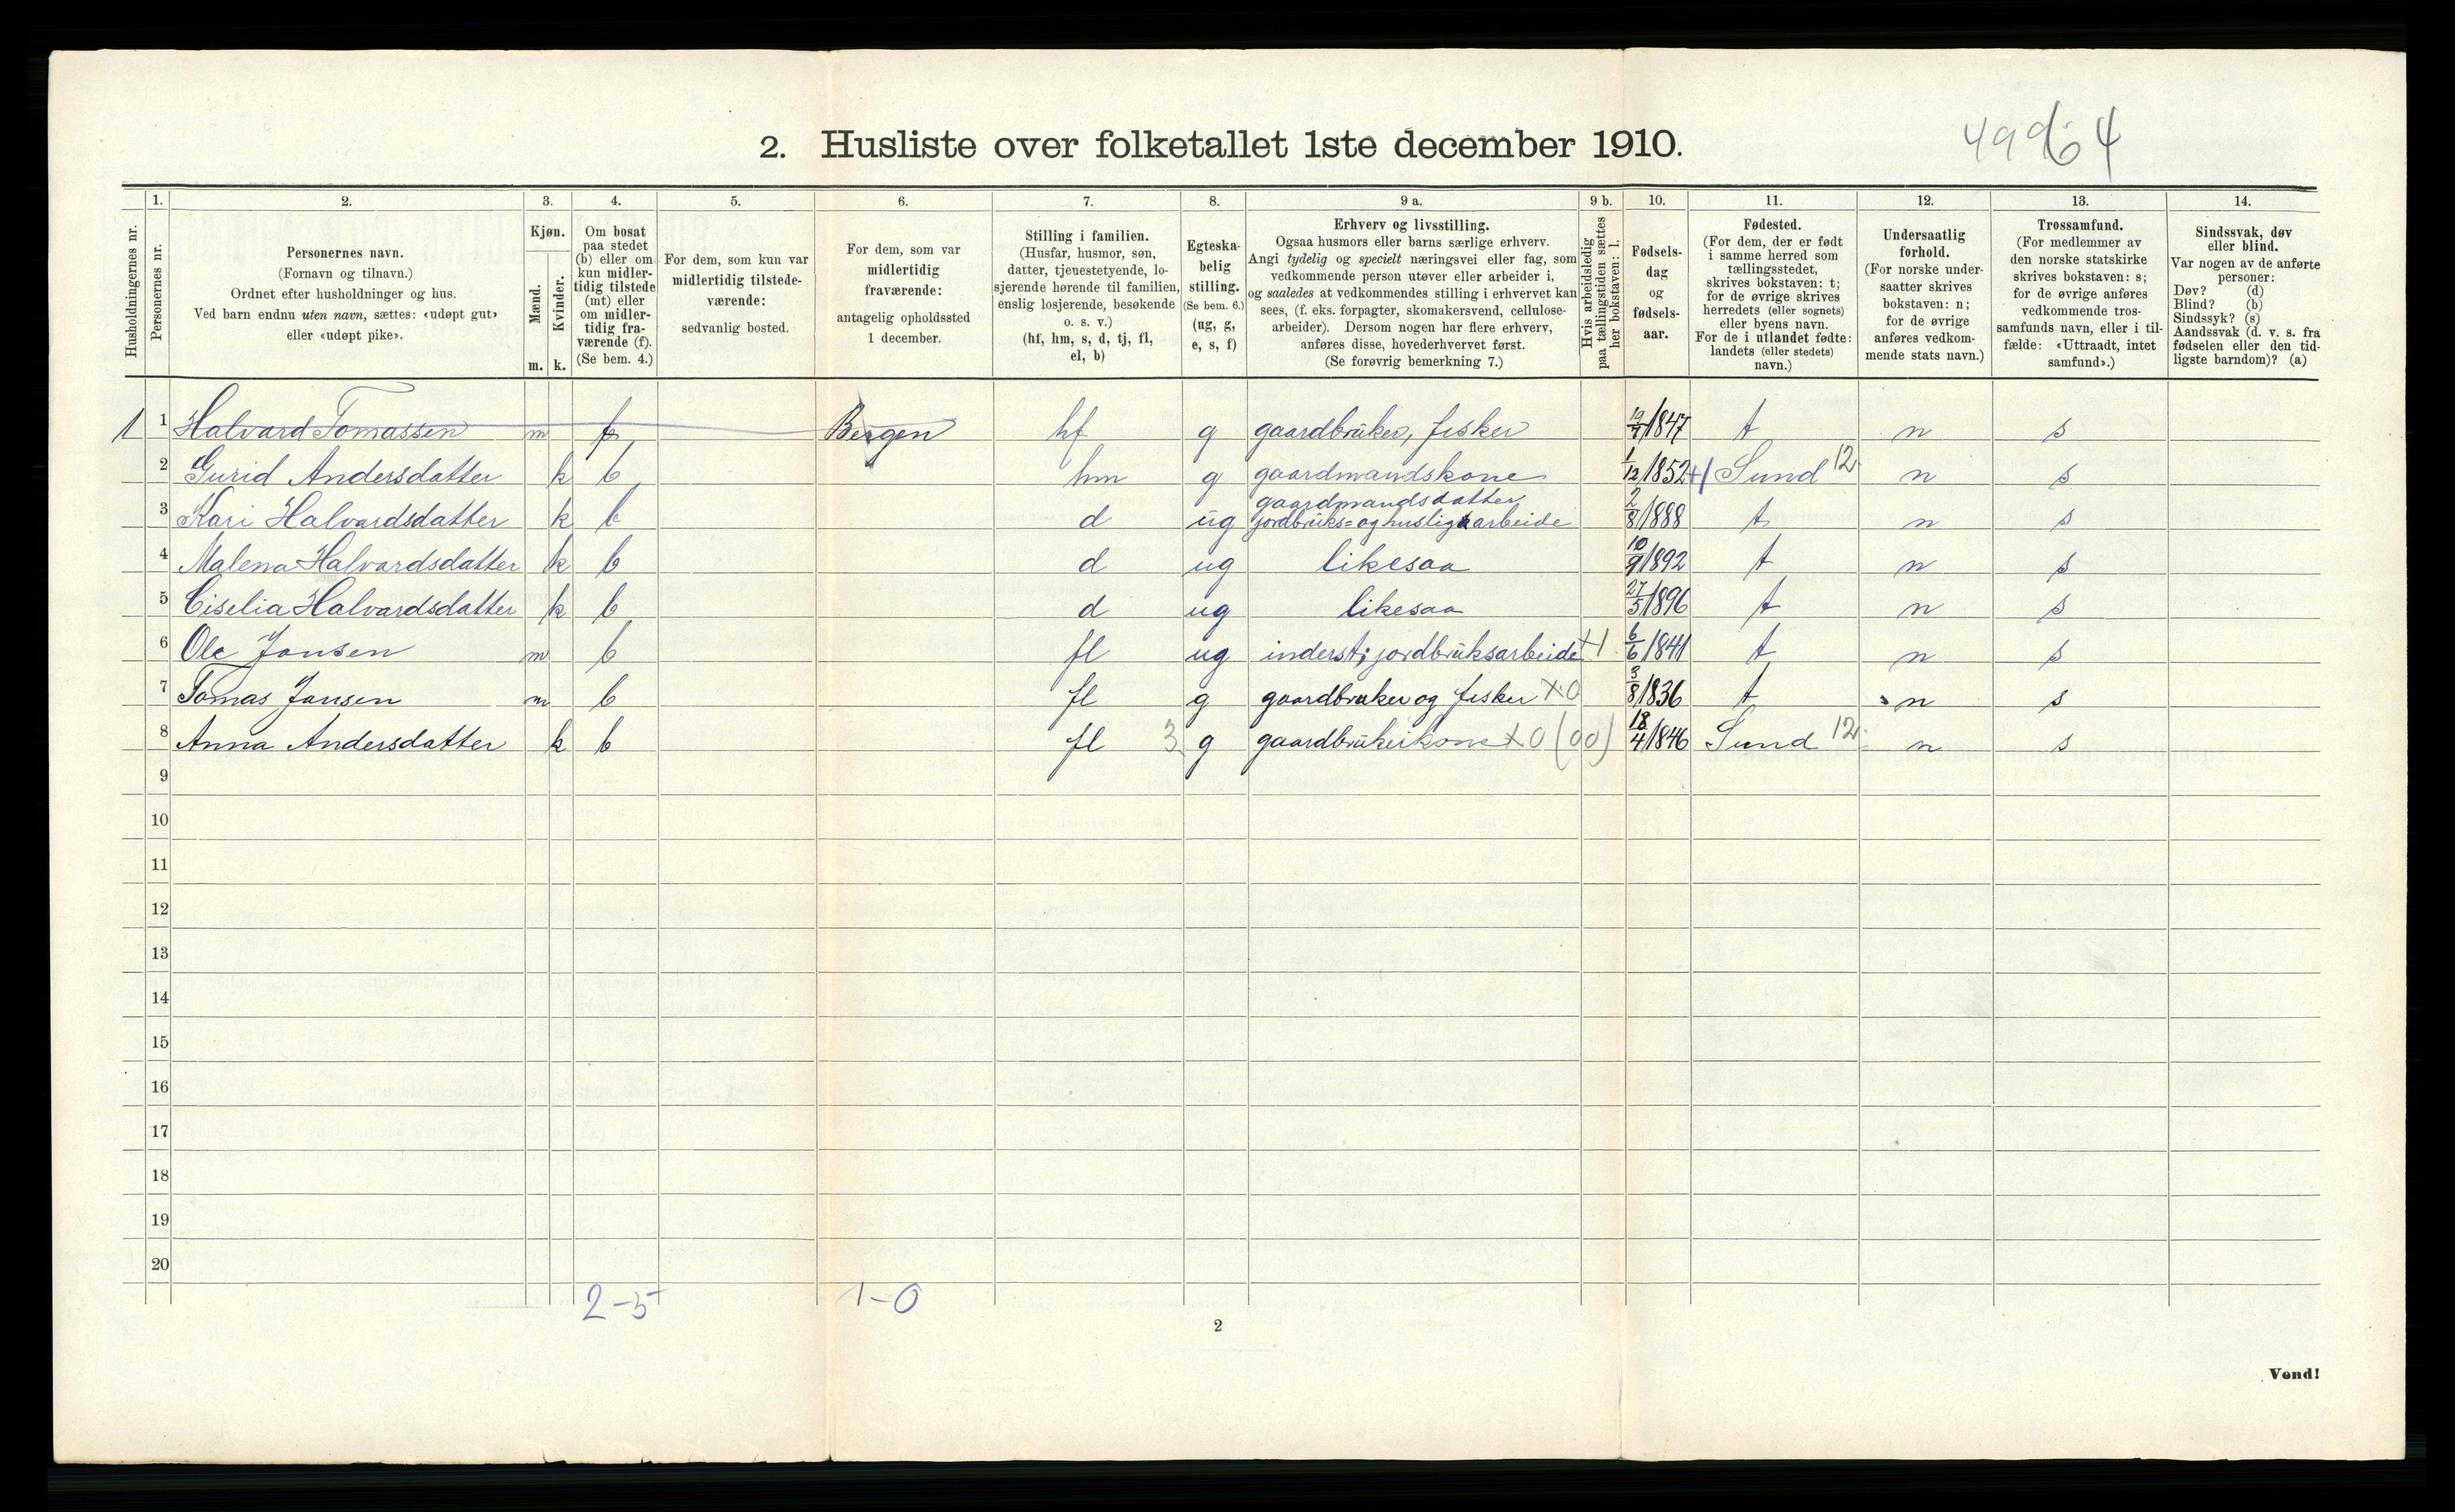 2. Husliste over folketallet 1ste december 1910.
4964
Husholdningernes nr.
1.
Personernes nr.
2.
Personernes navn.
(Fornavn og tilnavn.)
Ordnet efter husholdninger og hus.
Ved barn endnu uten navn, sættes: «udøpt gut»
eller «udøpt pike».
3.
Kjøn.
Mænd.
Kvinder.
m. k.
4.
Om bosat
paa stedet
(b) eller om
kun midler-
tidig tilstede
(mt) eller
om midler-
tidig fra-
værende (f).
(Se bem. 4.)
5.
For dem, som kun var
midlertidig tilstede-
værende:
sedvanlig bosted.
6.
For dem, som var
midlertidig
fraværende:
antagelig opholdssted
1 december.
7.
Stilling i familien.
(Husfar, husmor, søn,
datter, tjenestetyende, lo-
sjerende hørende til familien,
enslig losjerende, besøkende
o. s. v.)
(hf, hm, s, d, tj, fl,
el, b)
8.
Egteska-
belig
stilling.
(Se bem. 6.)
(ug, g,
e, s, f)
9 a.
Erhverv og livsstilling.
Ogsaa husmors eller barns særlige erhverv.
Angi tydelig og specielt næringsvei eller fag, som
vedkommende person utøver eller arbeider i,
og saaledes at vedkommendes stilling i erhvervet kan
sees, (f. eks. forpagter, skomakersvend, cellulose-
arbeider). Dersom nogen har flere erhverv,
anføres disse, hovederhvervet først.
(Se forøvrig bemerkning 7.)
9 b.
Hvis arbeidsledig
paa tællingstiden sættes
her bokstaven: l.
10.
Fødsels-
dag
og
fødsels-
aar.
11.
Fødested.
(For dem, der er født
i samme herred som
tællingsstedet,
skrives bokstaven: t;
for de øvrige skrives
herredets (eller sognets)
eller byens navn.
For de i utlandet fødte:
landets (eller stedets)
navn.)
12.
Undersaatlig
forhold.
(For norske under-
saatter skrives
bokstaven: n;
for de øvrige
anføres vedkom-
mende stats navn.)
13.
Trossamfund.
(For medlemmer av
den norske statskirke
skrives bokstaven: s;
for de øvrige anføres
vedkommende tros-
samfunds navn, eller i til-
fælde: «Uttraadt, intet
samfund».)
14.
Sindssvak, døv
eller blind.
Var nogen av de anførte
personer:
Døv? (d)
Blind? (b)
Sindssyk? (s)
Aandssvak (d. v. s. fra
fødselen eller den tid-
ligste barndom)? (a)
1 1 Halvard Tomassen m f Bergen hf g gaardbruker, fisker 19/7 1847 t n s
2 Gurid Andersdatter k b hm g gaardmandskone 1/12 1852 +1 Sund 12 n s
3 Kari Halvardsdatter k b d ug gaardmandsdatter 2/8 1888 t n s
jordbruks= og huslig arbeide
4 Malena Halvardsdatter k b d ug likesaa 10/9 1892 t n s
5 Ciselia Halvardsdatter k b d ug likesaa 27/5 1896 t n s
6 Ole Jansen m b fl ug inderst; jordbruksarbeide +1 6/6 1841 t n s
7 Tomas Jansen m b fl g gaardbruker og fisker X0 3/8 1836 t n s
8 Anna Andersdatter k b fl 3 g gaardbrukerkone X0 (00) 18/4 1846 Sund 12 n s
9
10
11
12
13
14
15
16
17
18
19
20
2-5 1-0
2
Vend!